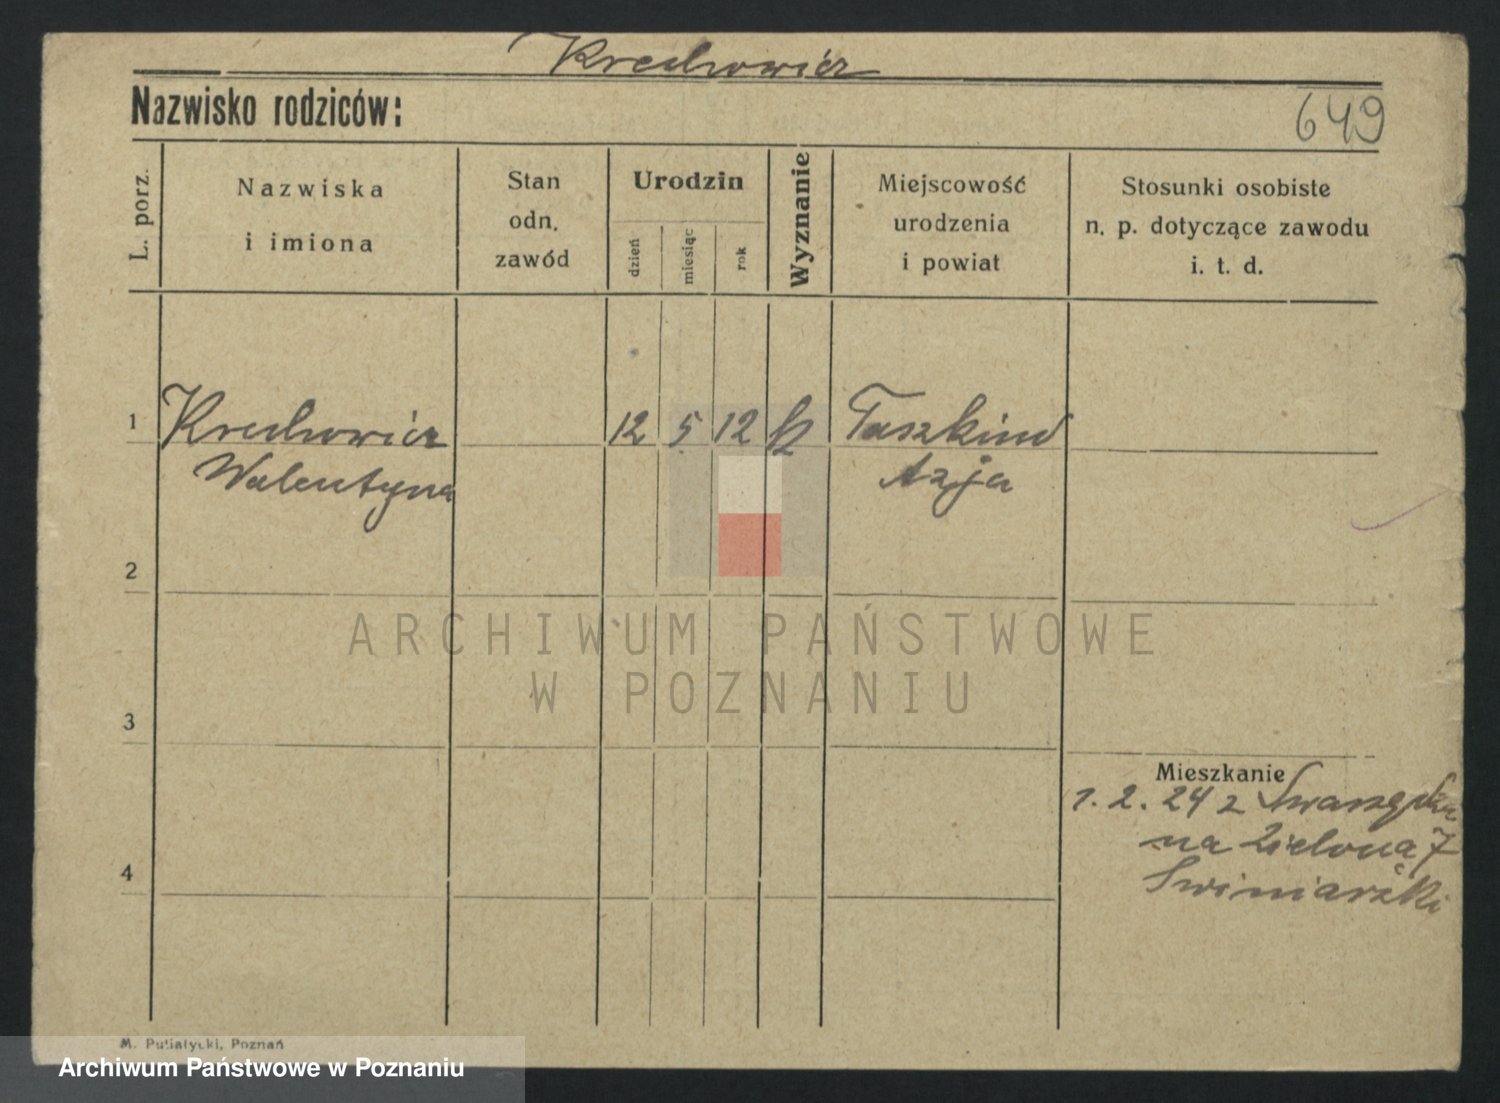 Krechowicz
Nazwisko rodziców:
649
L. porz.
Nazwiska
i imiona
Stan
odn.
zawód
Urodzin
dzień
miesiąc
rok
Wyznanie
Miejscowość
urodzenia
i powiat
Stosunki osobiste
n. p. dotyczące zawodu
i. t. d.
1 Krechowicz 12 5 12 Taszkind
Walentyna Azja
2
ARCHIWUM PAŃSTWOWE
W POZNANIU
3
Mieszkanie
1. 2. 24 z Swarzędza
na Zieloną 7
Swiniarski
4
M. Putiatycki, Poznań
Archiwum Państwowe w Poznaniu